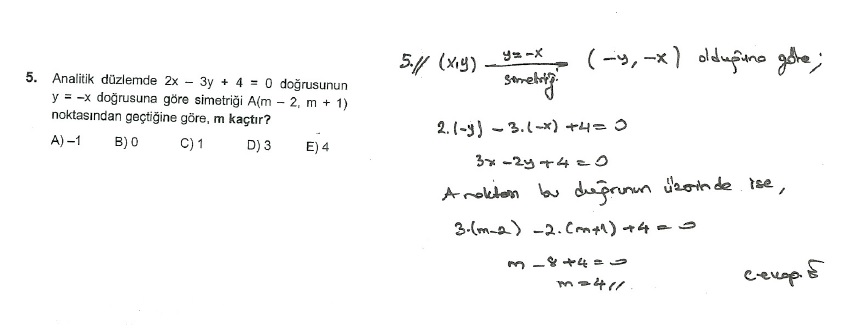 5. Analitik düzlemde 2x – 3y + 4 = 0 doğrusunun
y = –x doğrusuna göre simetriği A(m – 2, m + 1)
noktasından geçtiğine göre, m kaçtır?
A) –1 B) 0 C) 1 D) 3 E) 4
5.// (x,y) y=-x simetriği (-y, -x) olduğuna göre;
2.(-y) - 3.(-x) + 4 = 0
3x - 2y + 4 = 0
A noktası bu doğrunun üzerinde ise,
3.(m-2) - 2.(m+1) + 4 = 0
m - 8 + 4 = 0
m = 4 //
cevap. E